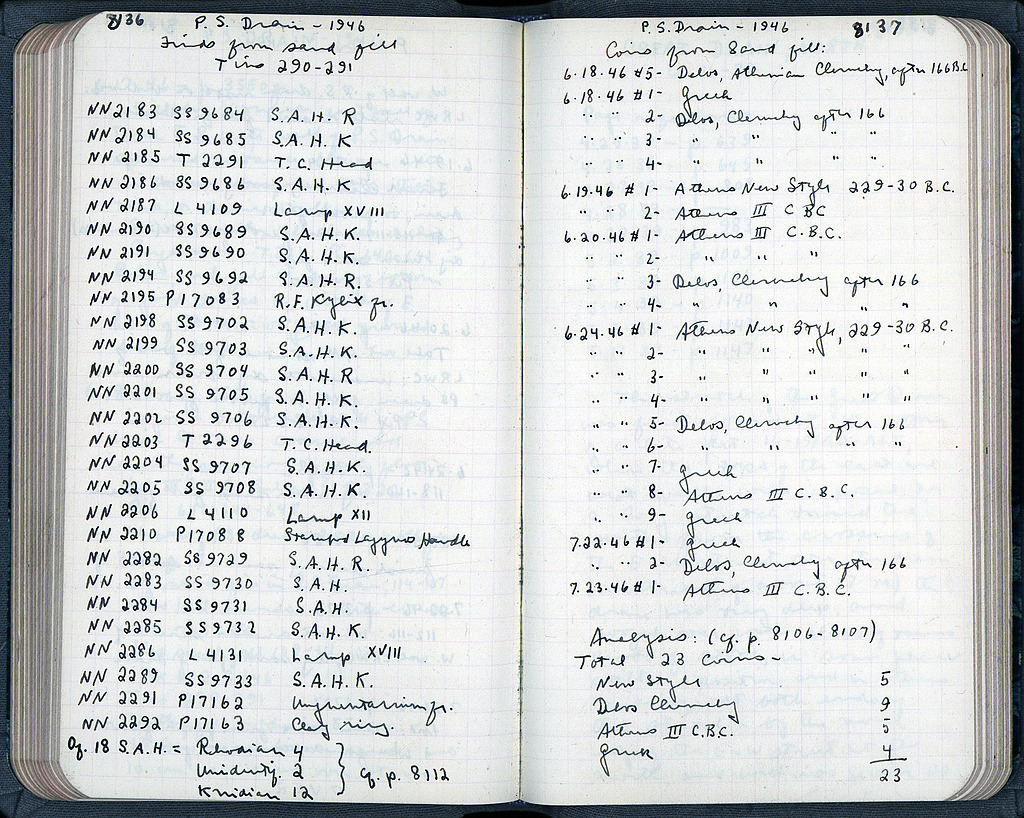 8136
P. S. Drain - 1946
Finds from sand fill
Tins 290-291
NN 2183 SS 9684 S.A.H. R
NN 2184 SS 9685 S.A.H. K
NN 2185 T 2291 T.C. Head
NN 2186 SS 9686 S.A.H. K
NN 2187 L 4109 Lamp XVIII
NN 2190 SS 9689 S.A.H.K.
NN 2191 SS 9690 S.A.H.K.
NN 2194 SS 9692 S.A.H.R.
NN 2195 P 17083 R.F. Kylix fr.
NN 2198 SS 9702 S.A.H.K.
NN 2199 SS 9703 S.A.H.K.
NN 2200 SS 9704 S.A.H.R
NN 2201 SS 9705 S.A.H.K.
NN 2202 SS 9706 S.A.H.K.
NN 2203 T 2296 T.C. Head.
NN 2204 SS 9707 S.A.H.K.
NN 2205 SS 9708 S.A.H.K.
NN 2206 L 4110 Lamp XII
NN 2210 P 17088 Stamped Lagynos Handle
NN 2282 SS 9729 S.A.H.R.
NN 2283 SS 9730 S.A.H.
NN 2284 SS 9731 S.A.H.
NN 2285 SS 9732 S.A.H.K.
NN 2286 L 4131 Lamp XVIII
NN 2289 SS 9733 S.A.H.K.
NN 2291 P 17162 Unguentarium fr.
NN 2292 P 17163 Clay ring.
Of 18 S.A.H. = Rhodian 4
Unidentif. 2 cf. p. 8112
Knidian 12
P.S. Drain - 1946 8137
Coins from Sand fill:
6.18.46 #5- Delos, Athenian Cleruchy, after 166 B.C.
6.18.46 #1- Greek
" " 2- Delos, Cleruchy after 166
" " 3- " " " "
" " 4- " " " "
6.19.46 #1- Athens New Style 229-30 B.C.
" " 2- Athens III C BC
6.20.46 #1- Athens III C.B.C.
" " 2- " " "
" " 3- Delos, Cleruchy after 166
" " 4- " " " "
6.24.46 #1- Athens New Style, 229-30 B.C.
" " 2- " " " " "
" " 3- " " " " "
" " 4- " " " " "
" " 5- Delos, Cleruchy after 166
" " 6- " " " "
" " 7- Greek
" " 8- Athens III C.B.C.
" " 9- Greek
7.22.46 #1- Greek
" " 2- Delos, Cleruchy after 166
7.23.46 #1- Athens III C.B.C.
Analysis: (cf. p. 8106-8107)
Total 23 coins-
New Style 5
Delos Cleruchy 9
Athens III C.B.C. 5
Greek 4
23